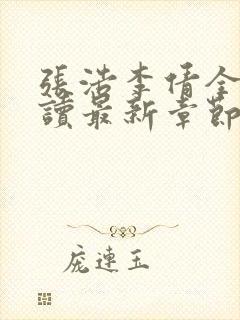 張浩李倩全
讀最新章節
庞連玉